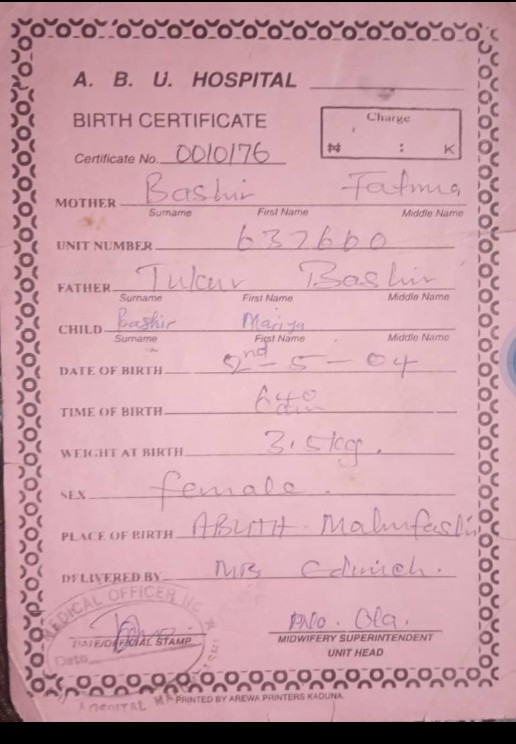 A. B. U. HOSPITAL
BIRTH CERTIFICATE
Charge
₦ : K
Certificate No. 0010176
MOTHER Bashir Fatima
Surname First Name Middle Name
UNIT NUMBER 637660
FATHER Tukur Bashir
Surname First Name Middle Name
CHILD Bashir Mariya
Surname First Name Middle Name
DATE OF BIRTH 2nd - 5 - 04
TIME OF BIRTH 640 am
WEIGHT AT BIRTH 3.5kg.
SEX female.
PLACE OF BIRTH ABUTH Malumfashi
DELIVERED BY
MEDICAL OFFICER
DATE/OFFICIAL STAMP
Date
MIDWIFERY SUPERINTENDENT
UNIT HEAD
HOSPITAL
PRINTED BY AREWA PRINTERS KADUNA.